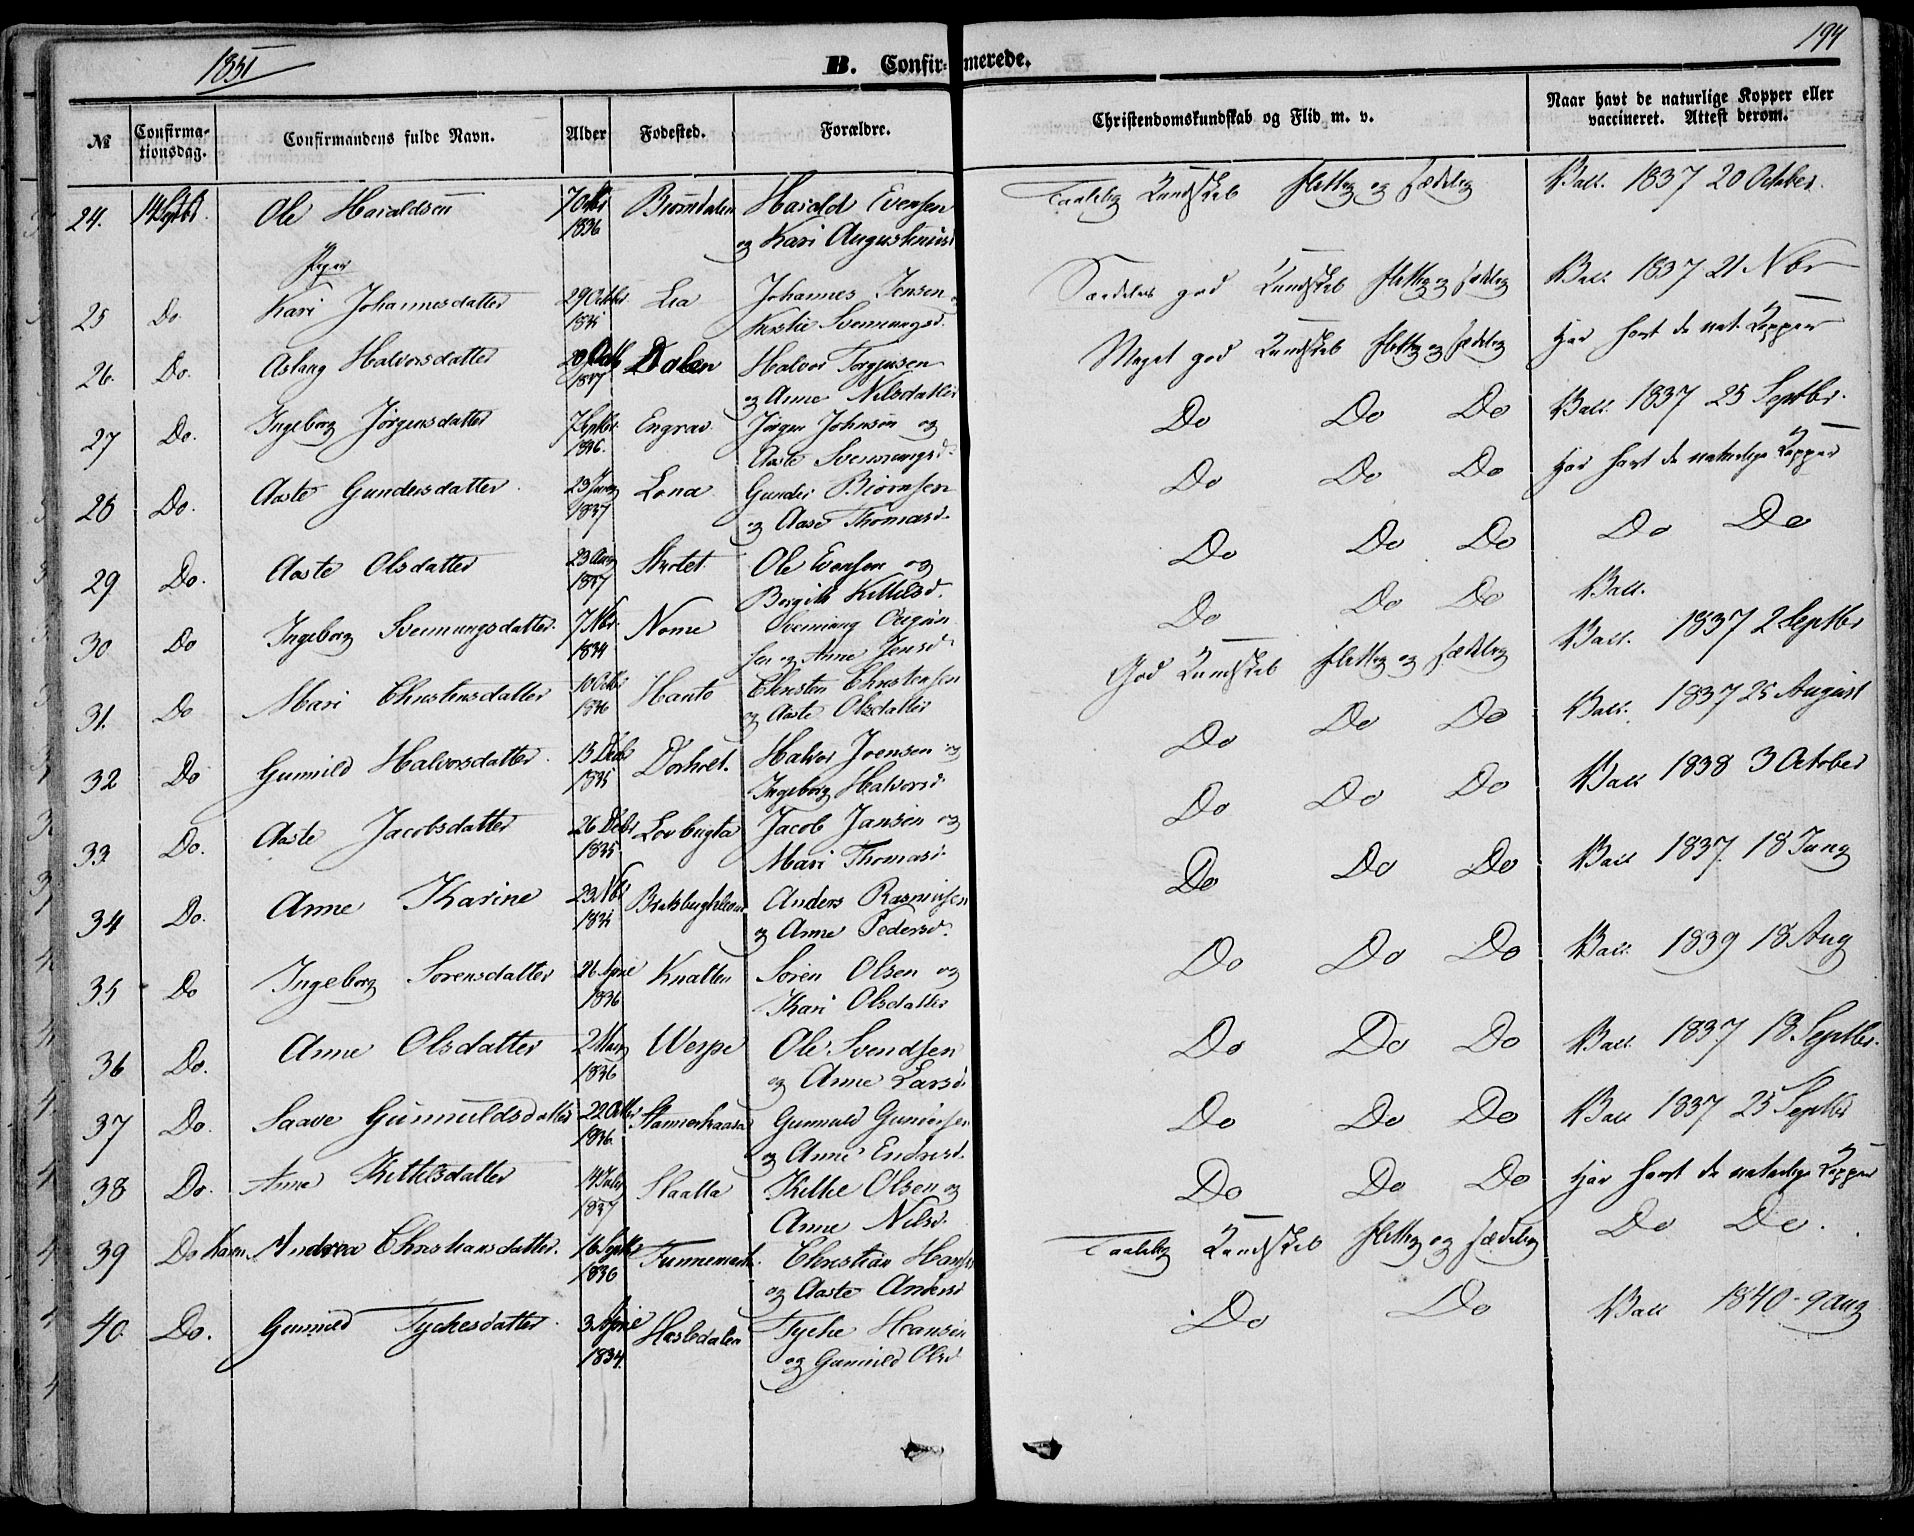 1851
B. Confirmerede.
194
№
Confirmationsdag.
Confirmandens fulde Navn.
Alder
Fodested.
Forældre.
Christendomskundskab og Flid m. v.
Naar havt de naturlige Kopper eller vaccineret. Attest derom.
24. 14 Septbr. Ole Haraldsen 7 Octbr 1836 Biørndalen Harald Evensen og Kari Augustinusd Taalelig Kundskab flittig og sædelig Vacc. 1837 20 October.
Piger
25 Do. Kari Johannesdatter 29 Octbr 1835 Lia Johannes Jensen og Kirstie Svenningsd. Særdeles god Kundskab flittig og sædelig Vacc. 1837 21 Nbr
26. Do. Aslaug Halvorsdatter 1837 Dalen Halvor Torgjusen og Anne Nilsdatter Meget god Kundskab flittig og sædelig Har havt de nat. Kopper
27 Do. Ingeborg Jörgensdatter 7 Septbr. 1836. Engrav Jörgen Johnsen og Aaste Svenningsd. Do Do Do Vacc. 1837 25 Septbr.
28 Do. Aaste Gundersdatter 23 1837 Lona Gunder Biörnsen og Aase Thomasd. Do Do Do Har havt de naturlige Kopper
29 Do. Aaste Olsdatter 23 Aug 1837 Stvtet Ole Evensen og Borgith Kittilsd. Do Do Do Do Do
30 Do Ingeborg Svenningsdatter. 7 Nbr. 1834 Nome Svenning sen og Anne Jensd. Do Do Do Vacc.
31. Do Mari Christensdatter 10 Octbr 1836 Hauto Christen Christensen og Aaste Olsdatter God Kundskab flittig og sædelig Vacc. 1837 2 Septbr
32 Do Gunnild Halvorsdatter. 13 Debr 1835 Dorholt. Halvor Joensen og Ingeborg Halvorsd Do Do Do Vacc. 1837 25 August
33 Do. Aaste Jacobsdatter 26 Debr 1835 Lovbugta Jacob Jansen og Mari Thomasd. Do Do Do Vacc 1838 3 October
34 Do. Anne Karine 23 Nbr 1835 Anders Rasmusen og Anne Pedersd. Do Do Do Vacc 1837 18 Juny
35 Do Ingeborg Sorensdatter 26 April 1836 Knatten Sören Olsen og Kari Olsdatter Do Do Do Vacc. 1839 18 Aug
36 Do. Anne Olsdatter 2 1836 Werpe Ole Svendsen og Anne Larsd. Do Do Do Vacc. 1837 18 Septbr.
37 Do. Saave Gunnuldsdatter 22 Octbr 1836. Gunnuld og Anne Endresd. Do Do Do Vacc 1837 25 Septbr
38 Do. Anne Kittelsdatter 14 1837 Slaatta Kittel Olsen og Anne Nilsd. Do Do Do Har havt de naturlige Kopper
39 Do Karen Andrea Christiansdatter. 16 Septbr 1836 Funnemark. Christian Hansen og Aaste Andersd Taalelig Kundskab flittig og sædelig Do Do.
40. Do. Gunnild Tychesdatter 3 April 1834. Hasledalen Tyche Hansen og Gunnild Olsd Do Do Vacc 1840 - 9 Aug